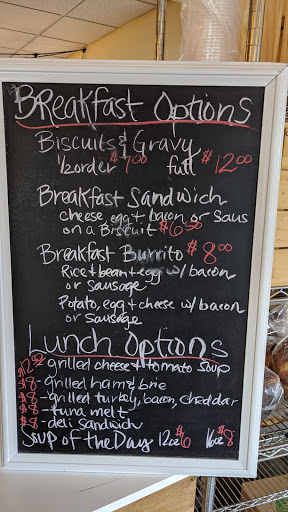 BReakfast Options
Biscuits & Gravy
1/2 order $7.00 full $12.00
Breakfast Sandwich
cheese, egg + bacon, or Saus
on a Biscuit $6.50
Breakfast Burrito $8.00
Rice + bean + egg w/ bacon
or sausage
Potato, egg + cheese w/ bacon
or Sausage
Lunch Options
$12.50 grilled cheese + tomato soup
$8- grilled ham & brie
$8- grilled turkey, bacon, cheddar
$8- tuna melt
$8- deli sandwich
Soup of the Day 12oz $6 16oz $8